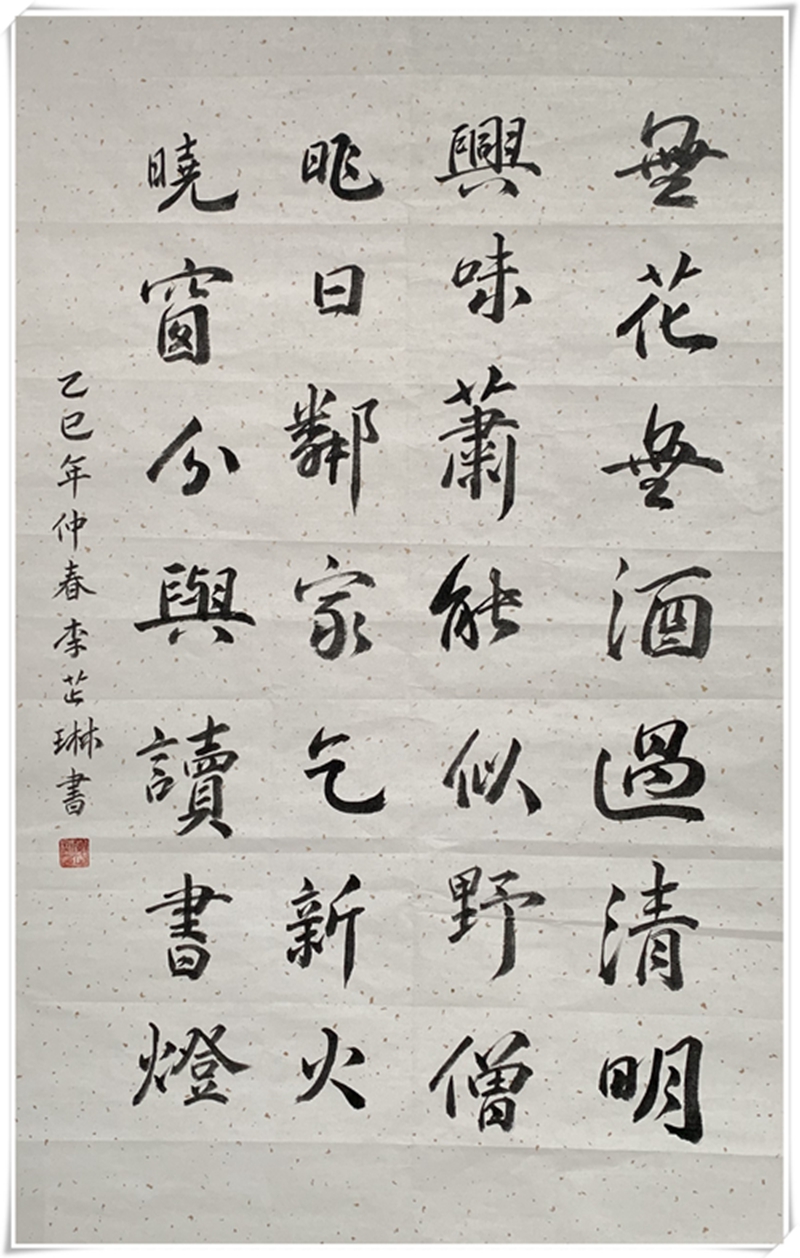 無花無酒過清明
興味蕭能似野僧
昨日鄰家乞新火
曉窗分與讀書燈
乙巳年仲春李芷琳書